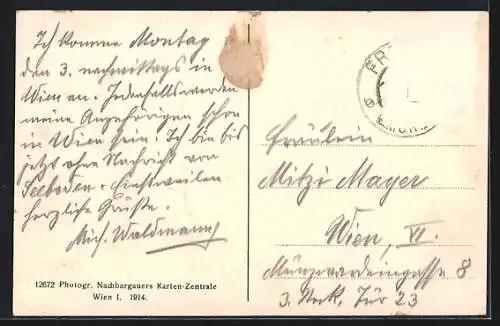 Ich komme Montag
den 3. nachmittags in
Wien an. Jedenfalls werden
meine Angehörigen schon
in Wien sein. Ich bin bis
jetzt ohne Nachricht von
Seeboden. Einstweilen
herzliche Grüße.
Mich. Waldmann
12672 Photogr. Nachbargauers Karten-Zentrale
Wien I. 1914.
Fräulein
Mitzi Mayer
Wien, VI.
Münzwardeingasse 8
3. Stock, Tür 23